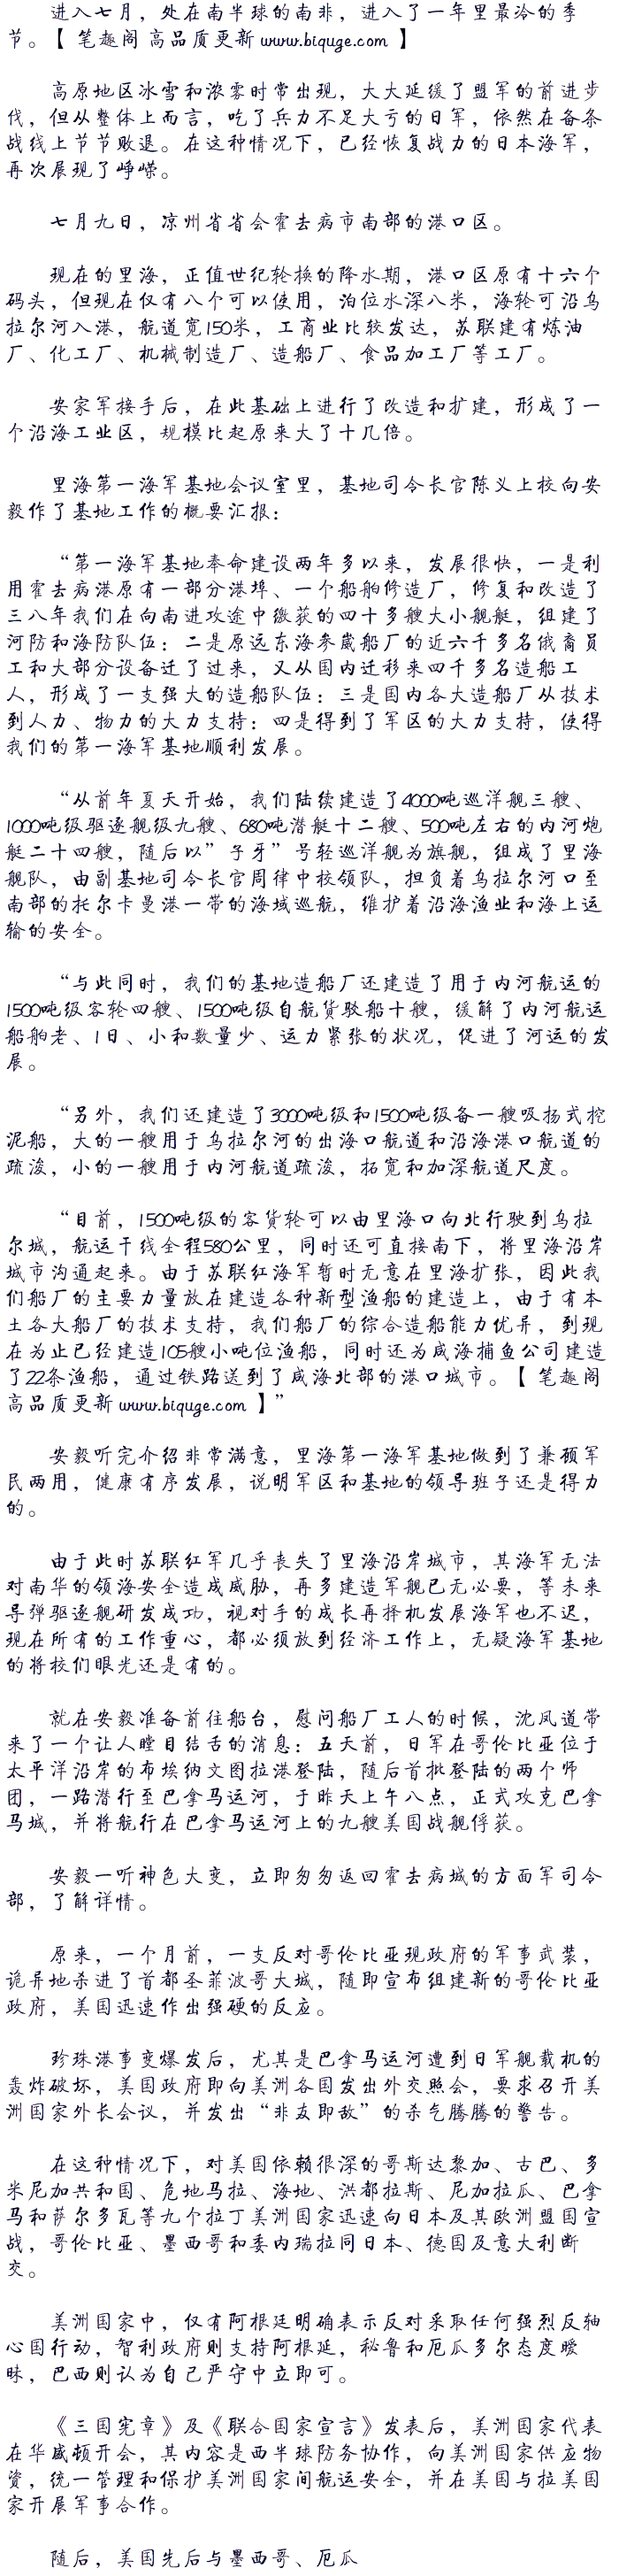 进入七月，处在南半球的南非，进入了一年里最冷的季
节。【 笔趣阁 高品质更新 www.biquge.com 】
高原地区冰雪和浓雾时常出现，大大延缓了盟军的前进步
伐，但从整体上而言，吃了兵力不足大亏的日军，依然在备条
战线上节节败退。在这种情况下，已经恢复战力的日本海军，
再次展现了峥嵘。
七月九日，凉州省省会霍去病市南部的港口区。
现在的里海，正值世纪轮换的降水期，港口区原有十六个
码头，但现在仅有八个可以使用，泊位水深八米，海轮可沿乌
拉尔河入港，航道宽150米，工商业比较发达，苏联建有炼油
厂、化工厂、机械制造厂、造船厂、食品加工厂等工厂。
安家军接手后，在此基础上进行了改造和扩建，形成了一
个沿海工业区，规模比起原来大了十几倍。
里海第一海军基地会议室里，基地司令长官陈义上校向安
毅作了基地工作的概要汇报：
“第一海军基地奉命建设两年多以来，发展很快，一是利
用霍去病港原有一部分港埠、一个船舶修造厂，修复和改造了
三八年我们在向南进攻途中缴获的四十多艘大小舰艇，组建了
河防和海防队伍：二是原远东海参崴船厂的近六千多名俄裔员
工和大部分设备迁了过来，又从国内迁移来四千多名造船工
人，形成了一支强大的造船队伍：三是国内各大造船厂从技术
到人力、物力的大力支持：四是得到了军区的大力支持，使得
我们的第一海军基地顺利发展。
“从前年夏天开始，我们陆续建造了4000吨巡洋舰三艘、
1000吨级驱逐舰级九艘、680吨潜艇十二艘、500吨左右的内河炮
艇二十四艘，随后以”子牙”号轻巡洋舰为旗舰，组成了里海
舰队，由副基地司令长官周律中校领队，担负着乌拉尔河口至
南部的托尔卡曼港一带的海域巡航，维护着沿海渔业和海上运
输的安全。
“与此同时，我们的基地造船厂还建造了用于内河航运的
1500吨级客轮四艘、1500吨级自航货驳船十艘，缓解了内河航运
船舶老、1日、小和数量少、运力紧张的状况，促进了河运的发
展。
“另外，我们还建造了3000吨级和1500吨级备一艘吸扬式挖
泥船，大的一艘用于乌拉尔河的出海口航道和沿海港口航道的
疏浚，小的一艘用于内河航道疏浚，拓宽和加深航道尺度。
“目前，1500吨级的客货轮可以由里海口向北行驶到乌拉
尔城，航运干线全程580公里，同时还可直接南下，将里海沿岸
城市沟通起来。由于苏联红海军暂时无意在里海扩张，因此我
们船厂的主要力量放在建造各种新型渔船的建造上，由于有本
土各大船厂的技术支持，我们船厂的综合造船能力优异，到现
在为止已经建造105艘小吨位渔船，同时还为咸海捕鱼公司建造
了22条渔船，通过铁路送到了咸海北部的港口城市。【 笔趣阁
高品质更新 www.biquge.com 】”
安毅听完介绍非常满意，里海第一海军基地做到了兼顾军
民两用，健康有序发展，说明军区和基地的领导班子还是得力
的。
由于此时苏联红军几乎丧失了里海沿岸城市，其海军无法
对南华的领海安全造成威胁，再多建造军舰已无必要，等未来
导弹驱逐舰研发成功，视对手的成长再择机发展海军也不迟，
现在所有的工作重心，都必须放到经济工作上，无疑海军基地
的将校们眼光还是有的。
就在安毅准备前往船台，慰问船厂工人的时候，沈凤道带
来了一个让人瞠目结舌的消息：五天前，日军在哥伦比亚位于
太平洋沿岸的布埃纳文图拉港登陆，随后首批登陆的两个师
团，一路潜行至巴拿马运河，于昨天上午八点，正式攻克巴拿
马城，并将航行在巴拿马运河上的九艘美国战舰俘获。
安毅一听神色大变，立即匆匆返回霍去病城的方面军司令
部，了解详情。
原来，一个月前，一支反对哥伦比亚现政府的军事武装，
诡异地杀进了首都圣菲波哥大城，随即宣布组建新的哥伦比亚
政府，美国迅速作出强硬的反应。
珍珠港事变爆发后，尤其是巴拿马运河遭到日军舰载机的
轰炸破坏，美国政府即向美洲各国发出外交照会，要求召开美
洲国家外长会议，并发出“非友即敌”的杀气腾腾的警告。
在这种情况下，对美国依赖很深的哥斯达黎加、古巴、多
米尼加共和国、危地马拉、海地、洪都拉斯、尼加拉瓜、巴拿
马和萨尔多瓦等九个拉丁美洲国家迅速向日本及其欧洲盟国宣
战，哥伦比亚、墨西哥和委内瑞拉同日本、德国及意大利断
交。
美洲国家中，仅有阿根廷明确表示反对采取任何强烈反轴
心国行动，智利政府则支持阿根延，秘鲁和厄瓜多尔态度暧
昧，巴西则认为自己严守中立即可。
《三国宪章》及《联合国家宣言》发表后，美洲国家代表
在华盛顿开会，其内容是西半球防务协作，向美洲国家供应物
资，统一管理和保护美洲国家间航运安全，并在美国与拉美国
家开展军事合作。
随后，美国先后与墨西哥、厄瓜